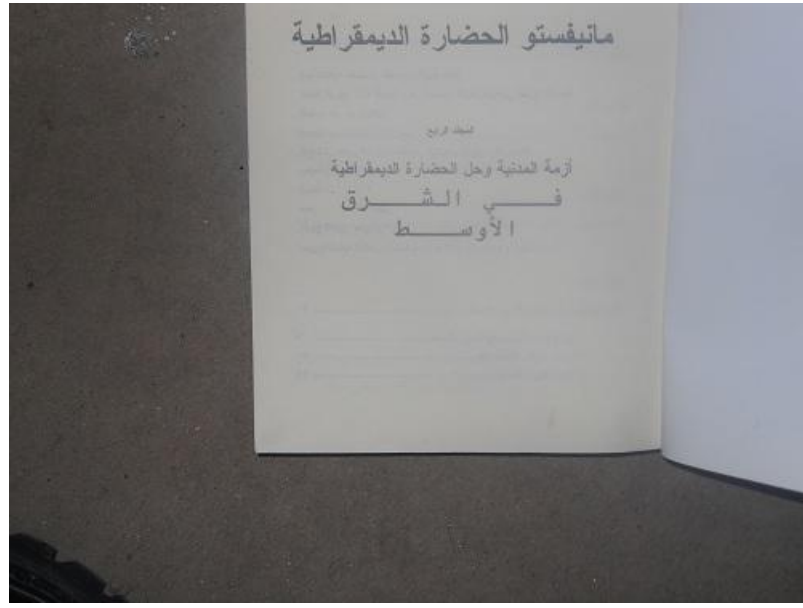 مانيفستو الحضارة الديمقراطية
المجلد الرابع
أزمة المدنية وحل الحضارة الديمقراطية
فـــــي الـشـــــرق
الأوســـــط